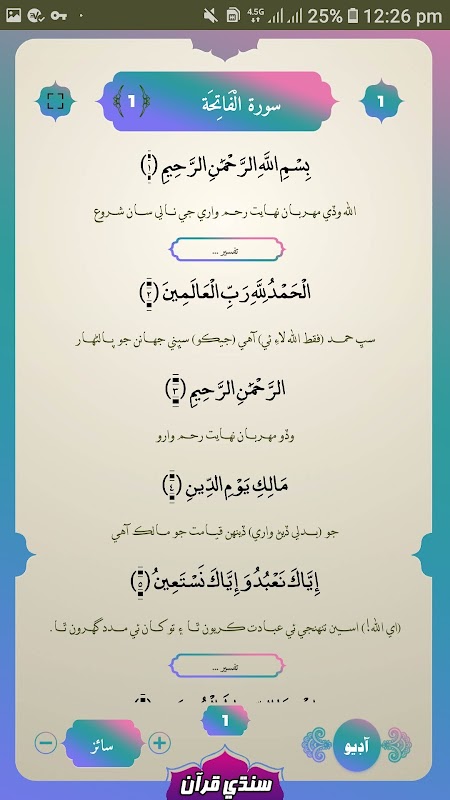 4.5G 25% 12:26 pm
1 سورة الْفَاتِحَة 1
بِسْمِ اللَّهِ الرَّحْمَٰنِ الرَّحِيمِ ﴿١﴾
الله وڏي مهربان نهايت رحم واري جي نالي سان شروع
تفسير ...
الْحَمْدُ لِلَّهِ رَبِّ الْعَالَمِينَ ﴿٢﴾
سڀ حمد (فقط الله لاءِ ئي) آهي (جيڪو) سڀني جهانن جو پالڻهار
الرَّحْمَٰنِ الرَّحِيمِ ﴿٣﴾
وڏو مهربان نهايت رحم وارو
مَالِكِ يَوْمِ الدِّينِ ﴿٤﴾
جو (بدلي ڏيڻ واري) ڏينهن قيامت جو مالڪ آهي
إِيَّاكَ نَعْبُدُ وَإِيَّاكَ نَسْتَعِينُ ﴿٥﴾
(اي الله!) اسين تنهنجي ئي عبادت ڪريون ٿا ۽ تو کان ئي مدد گهرون ٿا.
تفسير ...
1
سائز
آڊيو
سنڌي قرآن